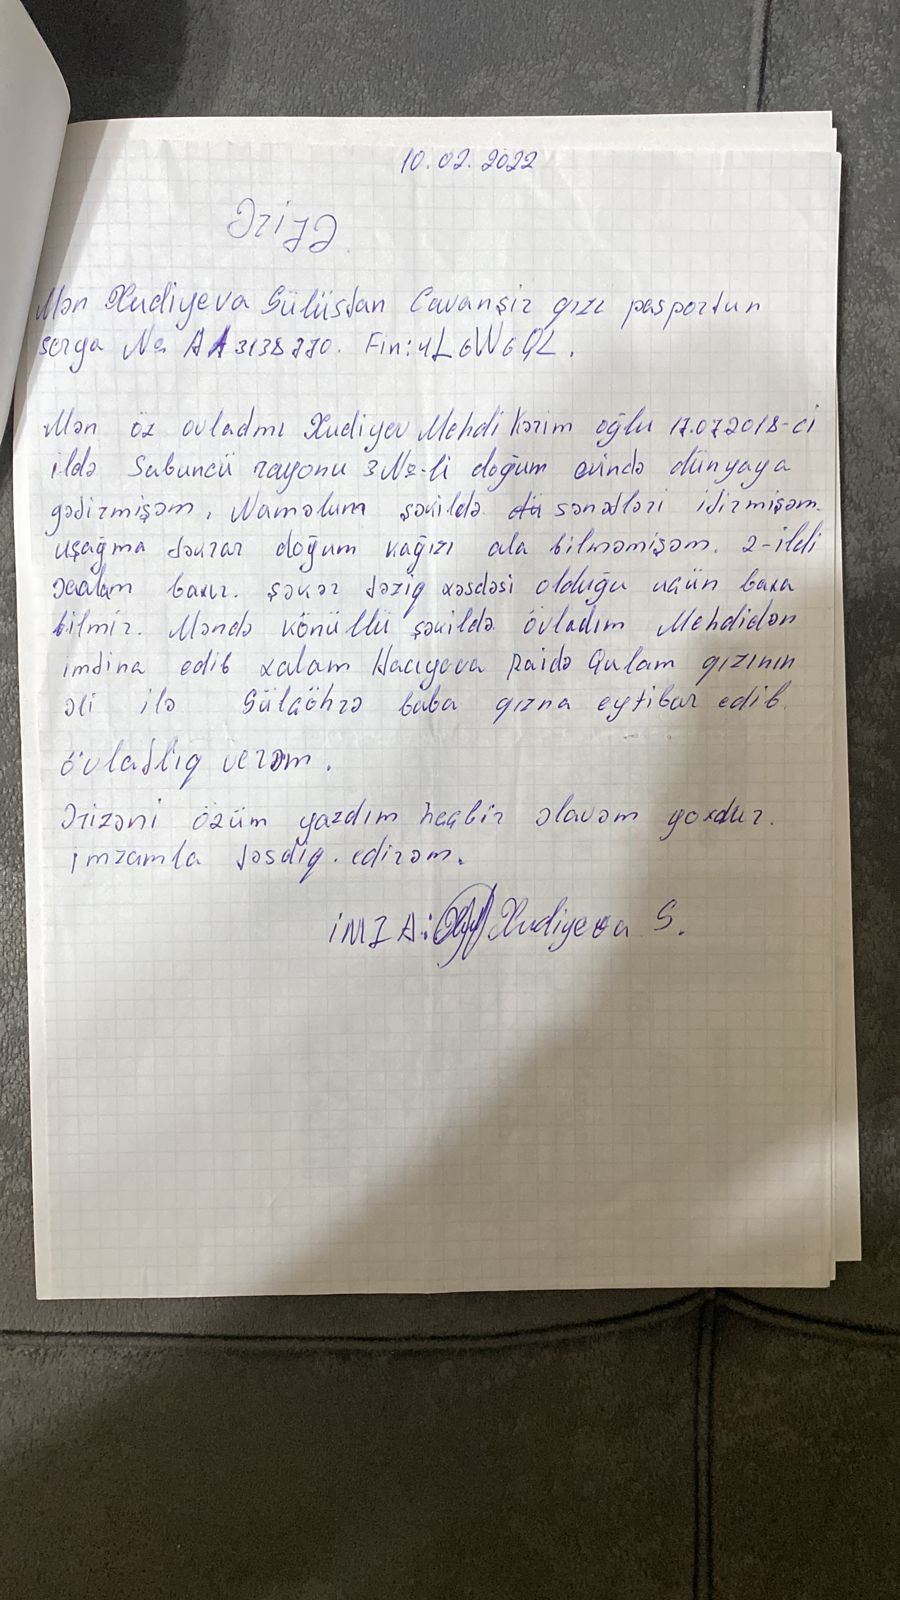 10.02.2022
Ərizə
Mən Xudiyeva Gülüstan Cavanşir qızı pasportun
serya № AA3138770. Fin: 4L6W6QL.
Mən öz ovladmı Xudiyev Mehdi Kərim oğlu 17.07.2018-ci
ildə Sabuncü rayonu 3 №-li doğum evində dünyaya
gədirmişəm. Naməlum şəkildə sənədləri idirmişəm.
uşağma təkrar doğum kağızı ala bilməmişəm. 2-ildi
xalam baxır. şəkər təziq xəsdəsi olduğu üçün baxa
bilmir. Məndə könüllü şəkildə övladım Mehdidən
imdina edib xalam Hacıyeva Raidə Qulam qızının
əli ilə Gülgöhrə baba qızna eytibar edib.
övladlıq verəm.
Ərizəni özüm yazdım heçbir əlavəm yoxdur.
imzamla təsdiq. edirəm.
İMZA: Xudiyeva S.